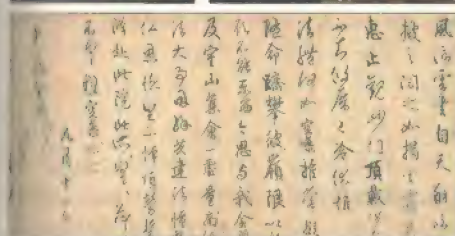 風信雲書自天翔臨
披之閲之如揭雲霧
恵止觀妙門頂戴供
不知攸厝已冷伏惟
法體何如空海推常擬
隨命躋攀彼嶺限以
願不能東西今思与我金蘭
及室山集會一處量商仏
法大事因縁共建法幢
仏恩德望不憚煩勞蹔
降赴此院此所望々
不具釋空海
九月十一日